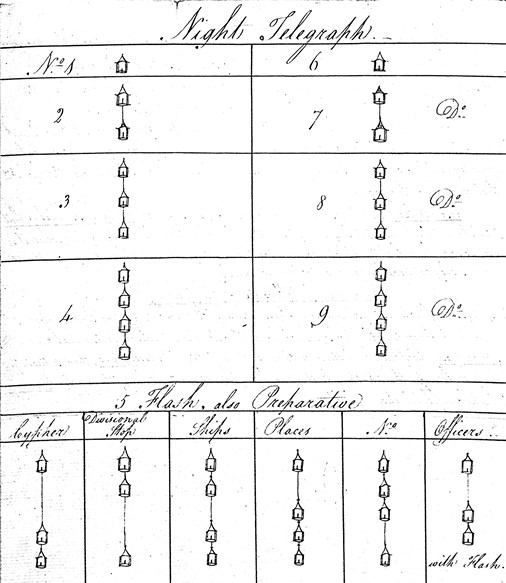 Night Telegraph.
No. 1 6
2 7 Do.
3 8 Do.
4 9 Do.
5 Flash, also Preparative
Cypher Divisional Stop Ships Places No. Officers
with Flash.